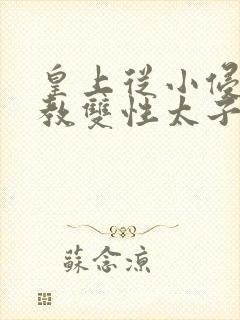 皇上從小
教雙性太子
蘇念涼